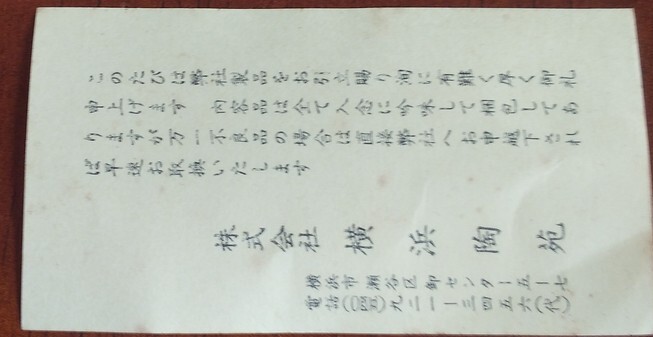 このたびは弊社製品をお引立賜り洵に有難く厚く御礼
申上げます 内容品は全て入念に吟味して梱包してあ
りますが万一不良品の場合は直接弊社へお申越下され
ば早速お取換いたします
株式会社 横浜陶苑
横浜市瀬谷区卸センター五ー七
電話(〇四五)九二一ー三四五六(代)